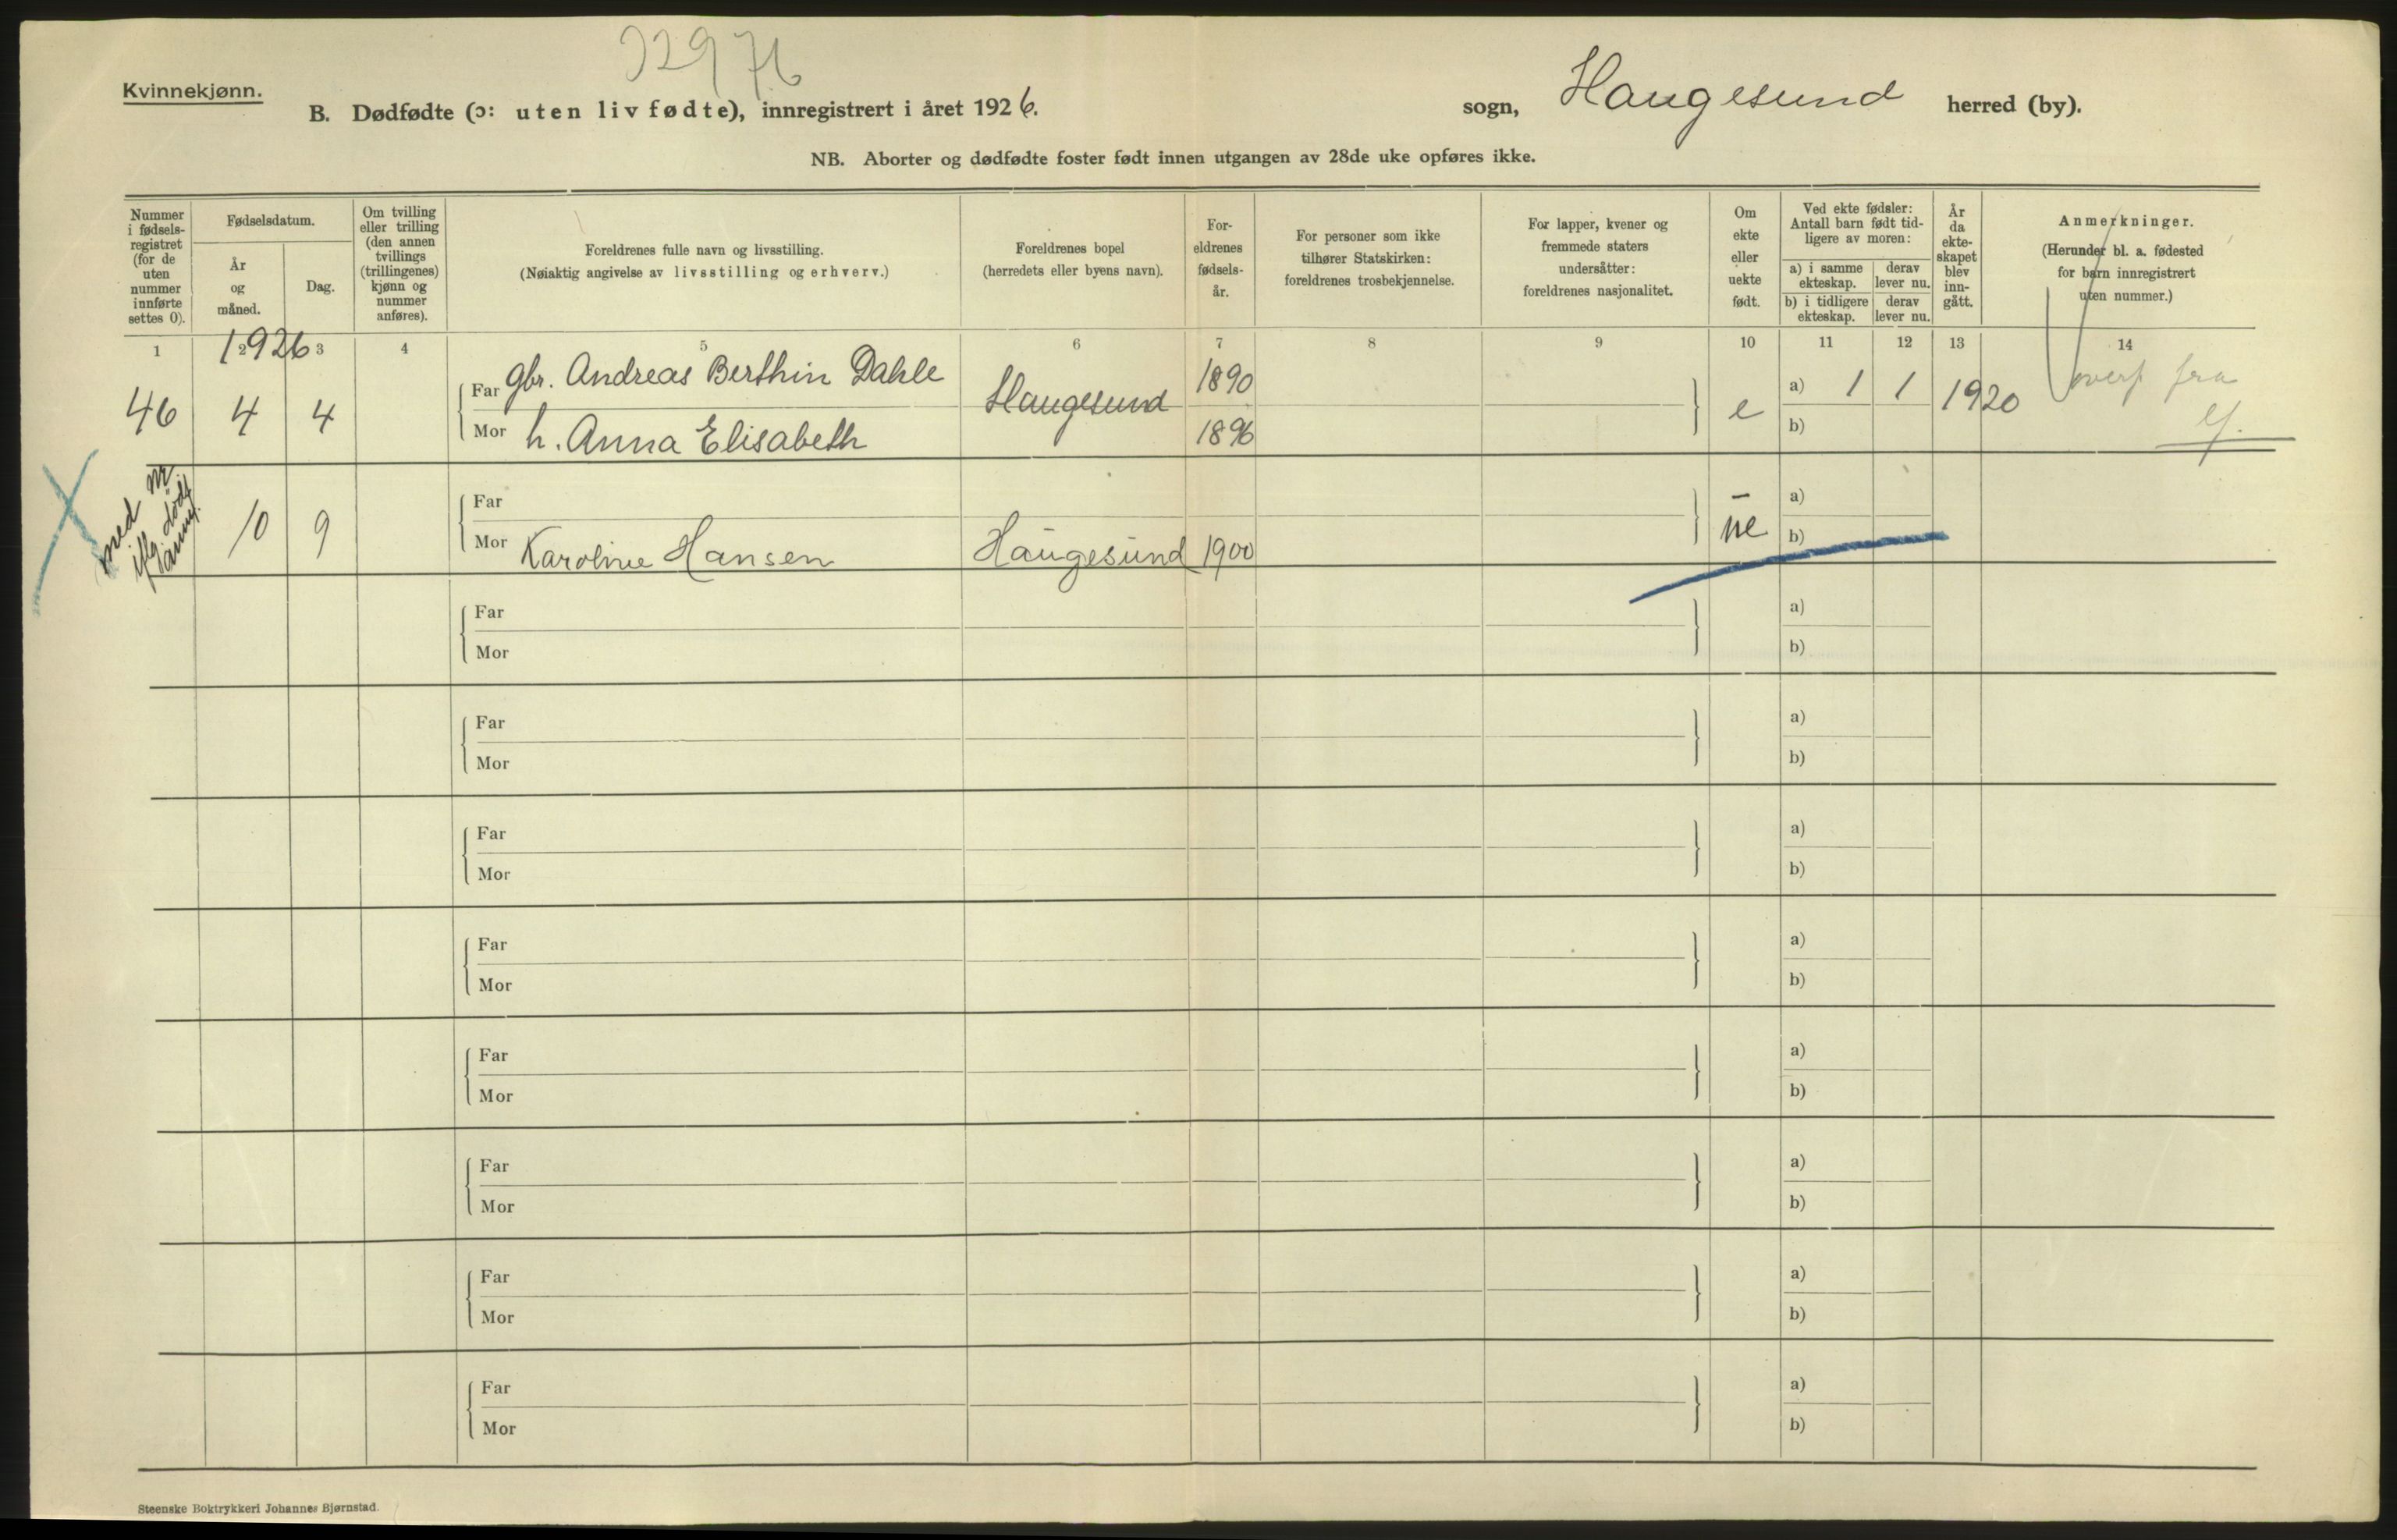 32976
Kvinnekjønn.
B. Dødfødte (ɔ: uten liv fødte), innregistrert i året 1926.
sogn, Haugesund herred (by).
NB. Aborter og dødfødte foster født innen utgangen av 28de uke opføres ikke.
Nummer i fødsels-registret (for de uten nummer innførte settes 0).
Fødselsdatum.
År og måned.
Dag.
Om tvilling eller trilling (den annen tvillings (trillingenes) kjønn og nummer anføres).
Foreldrenes fulle navn og livsstilling.
(Nøiaktig angivelse av livsstilling og erhverv.)
Foreldrenes bopel
(herredets eller byens navn).
For-eldrenes fødsels-år.
For personer som ikke tilhører Statskirken: foreldrenes trosbekjennelse.
For lapper, kvener og fremmede staters undersåtter: foreldrenes nasjonalitet.
Om ekte eller uekte født.
Ved ekte fødsler: Antall barn født tid-ligere av moren:
a) i samme ekteskap.
derav lever nu.
b) i tidligere ekteskap.
derav lever nu.
År da ekte-skapet blev inn-gått.
Anmerkninger.
(Herunder bl. a. fødested for barn innregistrert uten nummer.)
1 2 3 4 5 6 7 8 9 10 11 12 13 14
1926
46 4 4 Far gbr. Andreas Berthin Dahle Haugesund 1890 e a) 1 1 1920 overf fra
Mor h. Anna Elisabeth 1896 b) lf.
med nr
iflg. dødf
anm.
10 9 Far – a)
Mor Karoline Hansen Haugesund 1900 ue b)
Far a)
Mor b)
Far a)
Mor b)
Far a)
Mor b)
Far a)
Mor b)
Far a)
Mor b)
Far a)
Mor b)
Far a)
Mor b)
Far a)
Mor b)
Steenske Boktrykkeri Johannes Bjørnstad.